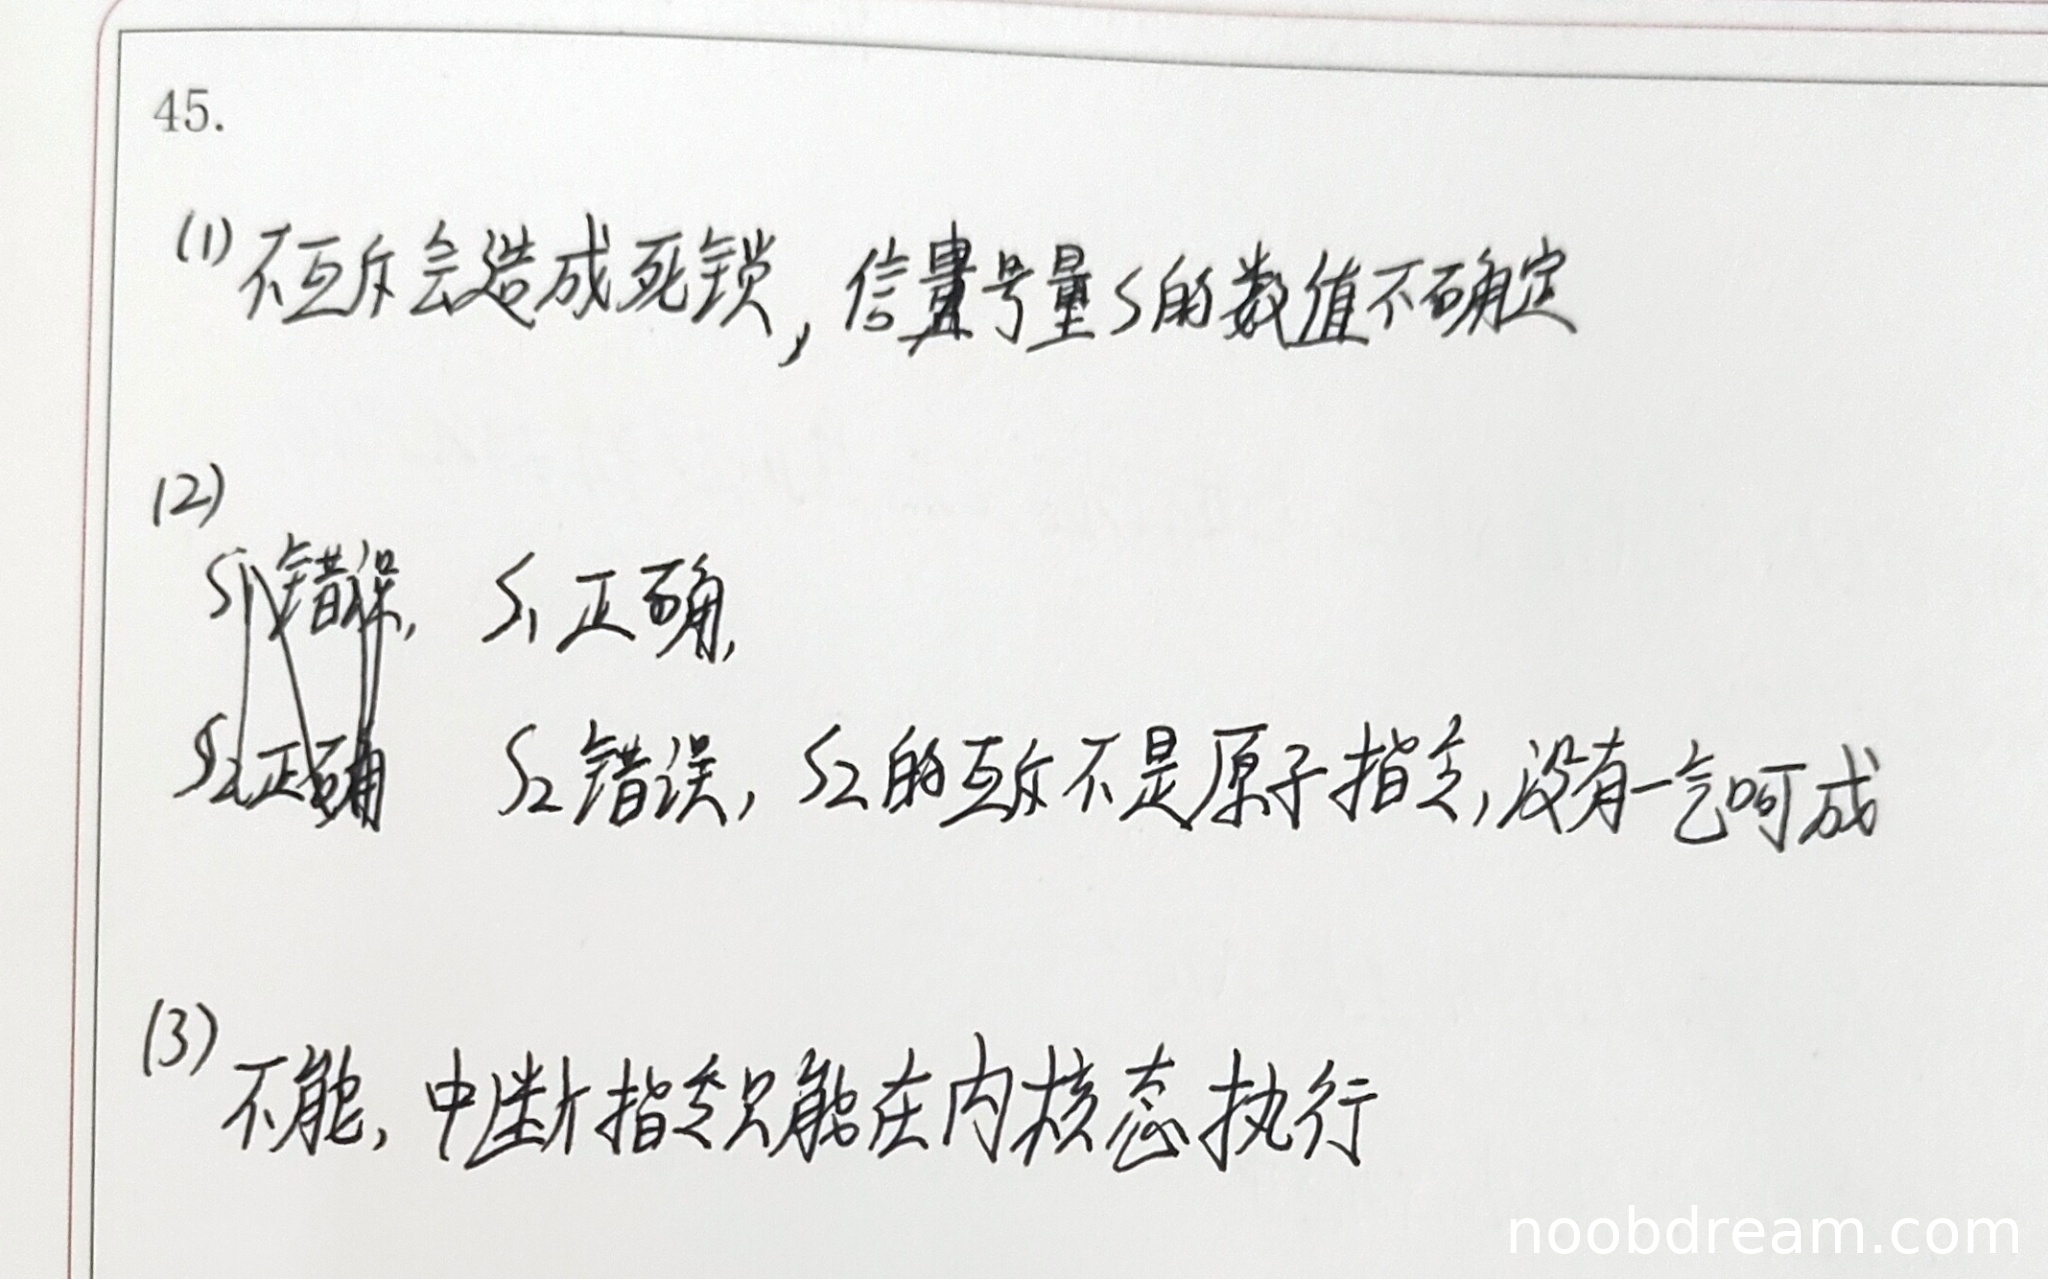 45.
(1) 不互斥会造成死锁，信号量S的数值不确定
(2)
S1错误， S1正确，
S2正确 S2错误，S2的互斥不是原子指令，没有一气呵成
(3) 不能，中断指令只能在内核态执行
noobdream.com